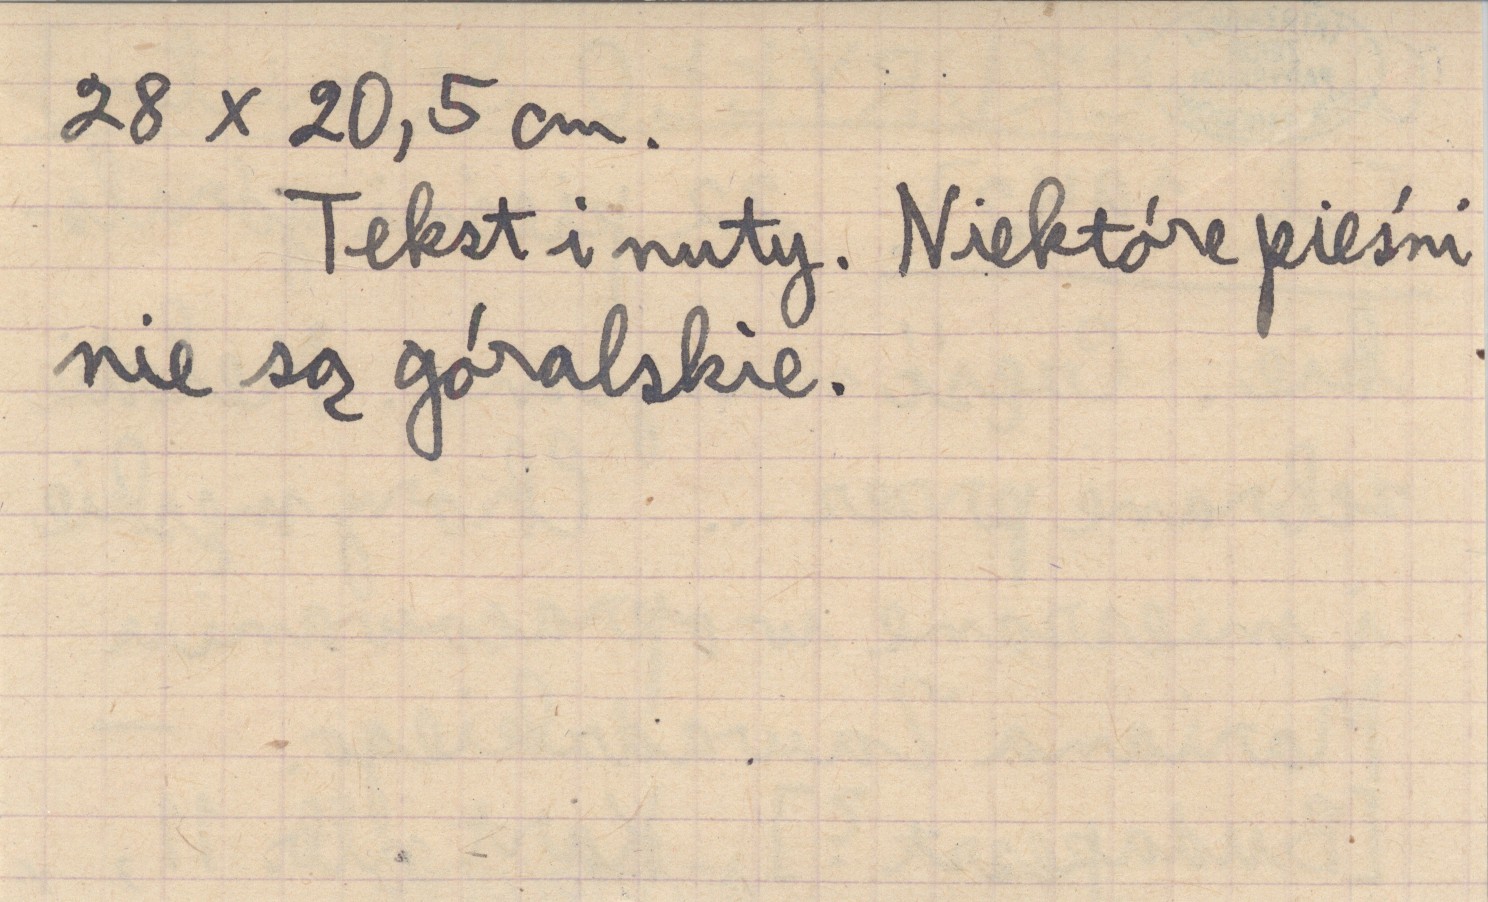 28 x 20,5 cm.
Tekst i nuty. Niektóre pieśni
nie są góralskie.